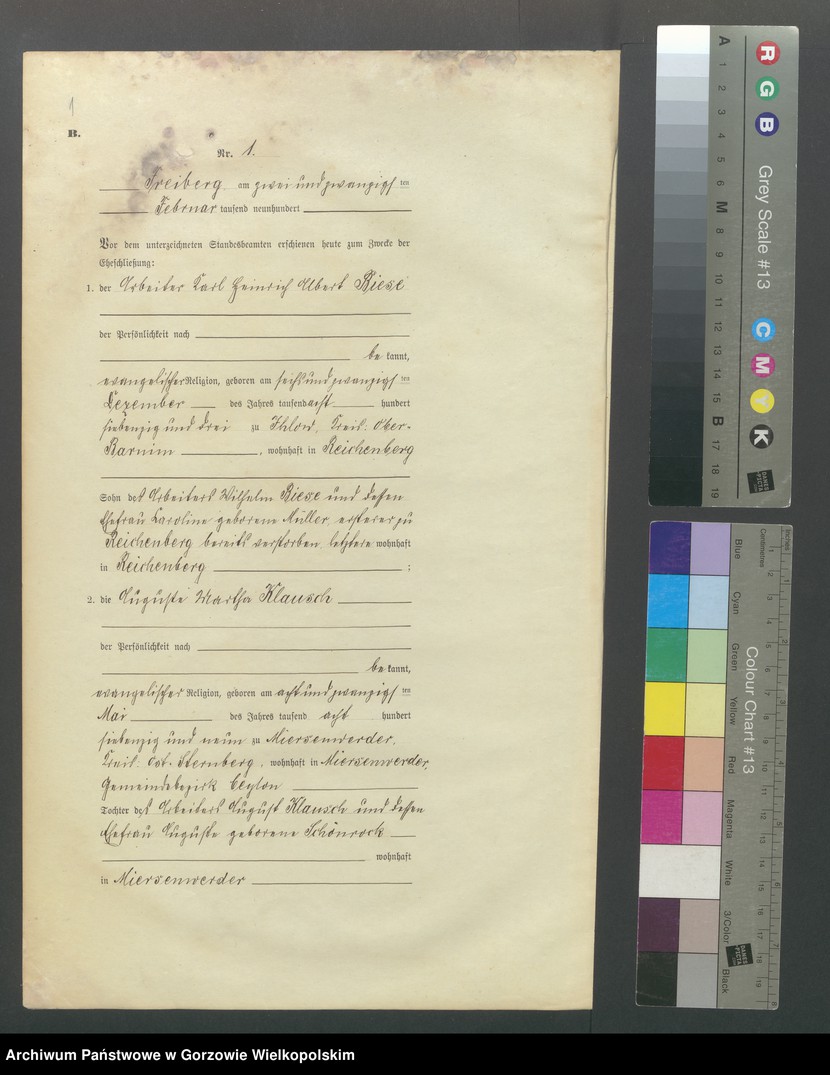 1
B.
Nr. 1.
Freiberg am zwei und zwanzigsten
Februar tausend neunhundert
Vor dem unterzeichneten Standesbeamten erschienen heute zum Zwecke der
Eheschließung:
1. der Arbeiter Karl Heinrich Albert Biese
der Persönlichkeit nach
be kannt,
evangelischer Religion, geboren am sechs und zwanzigsten
Dezember des Jahres tausend acht hundert
siebenzig und drei zu Ihlow, Kreis: Ober-
Barnim, wohnhaft in Reichenberg
Sohn des Arbeiters Wilhelm Biese und dessen
Ehefrau Karoline geborene Müller, ersterer zu
Reichenberg bereits verstorben, letztere wohnhaft
in Reichenberg ;
2. die Auguste Martha Klausch
der Persönlichkeit nach
be kannt,
evangelischer Religion, geboren am acht und zwanzigsten
Mai des Jahres tausend acht hundert
siebenzig und neun zu Miersenwerder,
Kreis: Ost-Sternberg, wohnhaft in Miersenwerder,
Gemeindebezirk Ceylon
Tochter des Arbeiters August Klausch und dessen
Ehefrau Auguste geborene Schönrock
wohnhaft
in Miersenwerder
R G B
Grey Scale #13
C M Y K
A 1 2 3 4 5 6 M 8 9 10 11 12 13 14 15 B 17 18 19
DANES PICTA
Colour Chart #13
Blue Cyan Green Yellow Red Magenta White 3/Color Black
Centimetres
Inches
DANES PICTA
Archiwum Państwowe w Gorzowie Wielkopolskim